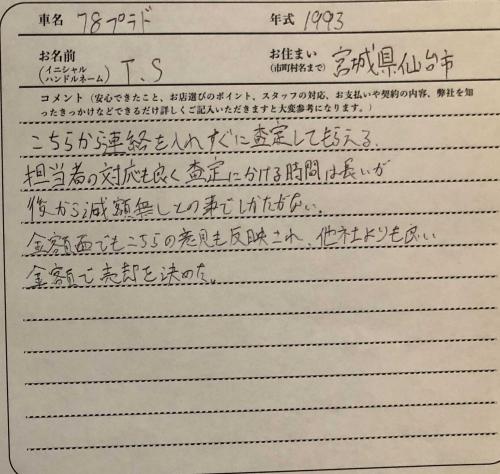 車名 78プラド 年式 1993
お名前 (イニシャル ハンドルネーム) T.S お住まい (市町村名まで) 宮城県仙台市
コメント（安心できたこと、お店選びのポイント、スタッフの対応、お支払いや契約の内容、弊社を知
ったきっかけなどできるだけ詳しくご記入いただきますと大変参考になります。）
こちらから連絡を入れすぐに査定してもらえる.
担当者の対応も良く 査定にかける時間は長いが
後から減額無しとの事でしかたがない.
金額面でもこちらの意見も反映され、他社よりも良い
金額で売却を決めた。